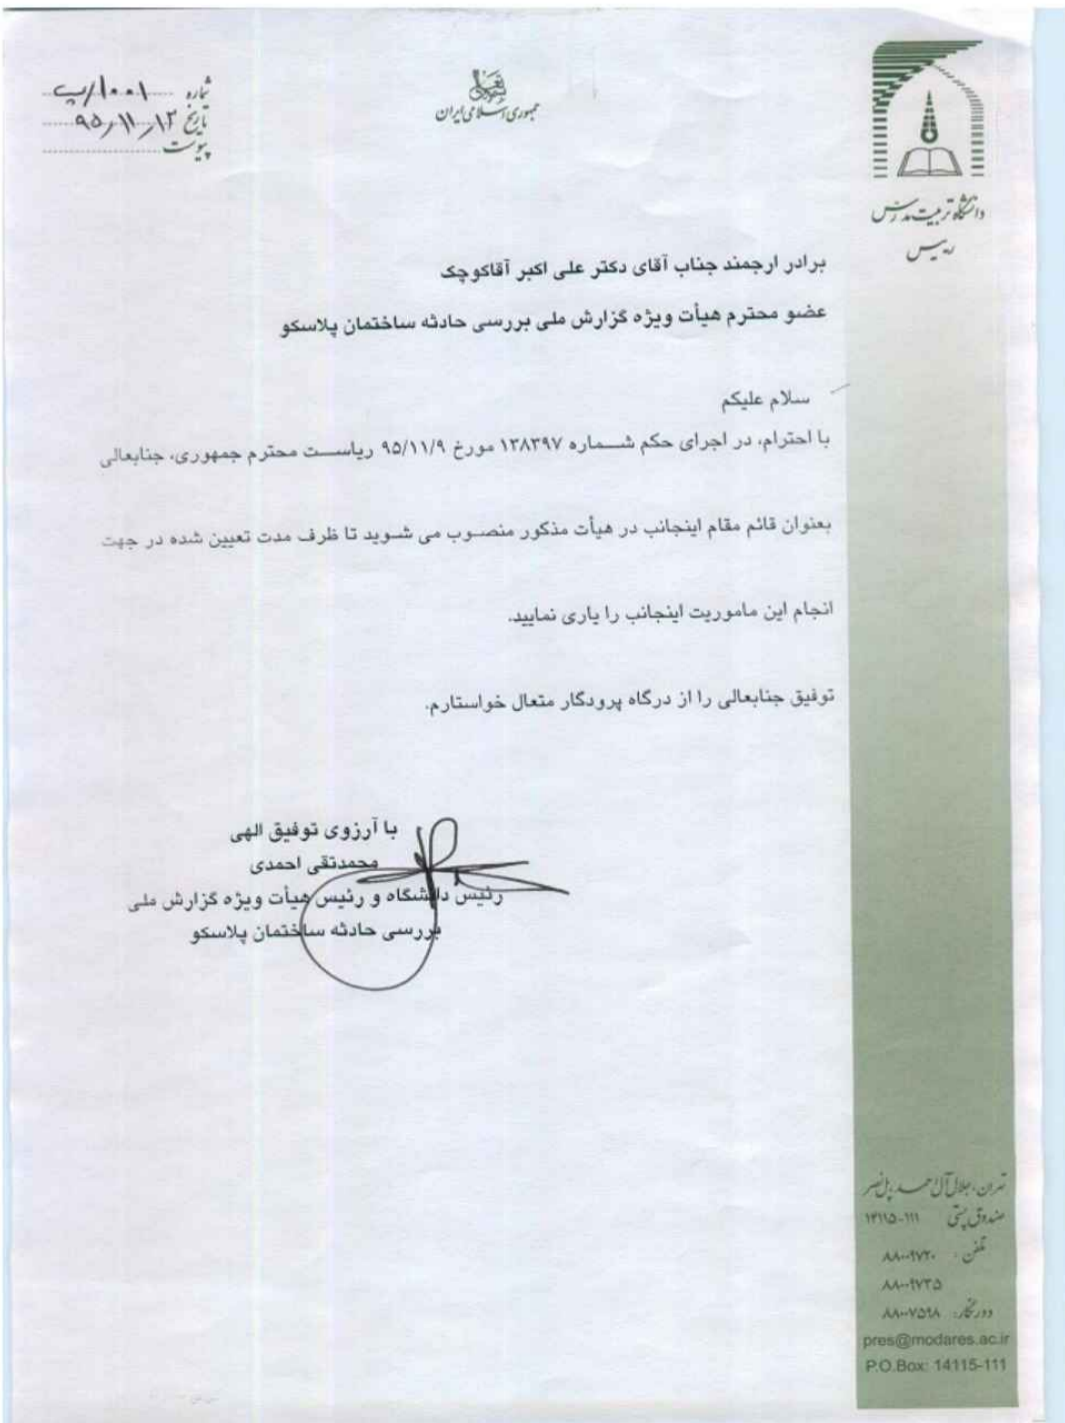 شماره ۱۰۰۱/پ
تاریخ ۹۵/۱۱/۱۲
پیوست
بسمه تعالی
جمهوری اسلامی ایران
دانشگاه تربیت مدرس
رییس
برادر ارجمند جناب آقای دکتر علی اکبر آقاکوچک
عضو محترم هیأت ویژه گزارش ملی بررسی حادثه ساختمان پلاسکو
سلام علیکم
با احترام، در اجرای حکم شـــماره ۱۳۸۳۹۷ مورخ ۹۵/۱۱/۹ ریاســـت محترم جمهوری، جنابعالی
بعنوان قائم مقام اینجانب در هیأت مذکور منصــوب می شــوید تا ظرف مدت تعیین شده در جهت
انجام این ماموریت اینجانب را یاری نمایید.
توفیق جنابعالی را از درگاه پرودگار متعال خواستارم.
با آرزوی توفیق الهی
محمدتقی احمدی
رئیس دانشگاه و رئیس هیأت ویژه گزارش ملی
بررسی حادثه ساختمان پلاسکو
تهران، جلال آل احمد، پل نصر
صندوق پستی ۱۱۱-۱۴۱۱۵
تلفن : ۸۸۰۰۹۷۲۰
۸۸۰۰۹۷۳۵
دورنگار: ۸۸۰۰۷۵۹۸
pres@modares.ac.ir
P.O.Box: 14115-111